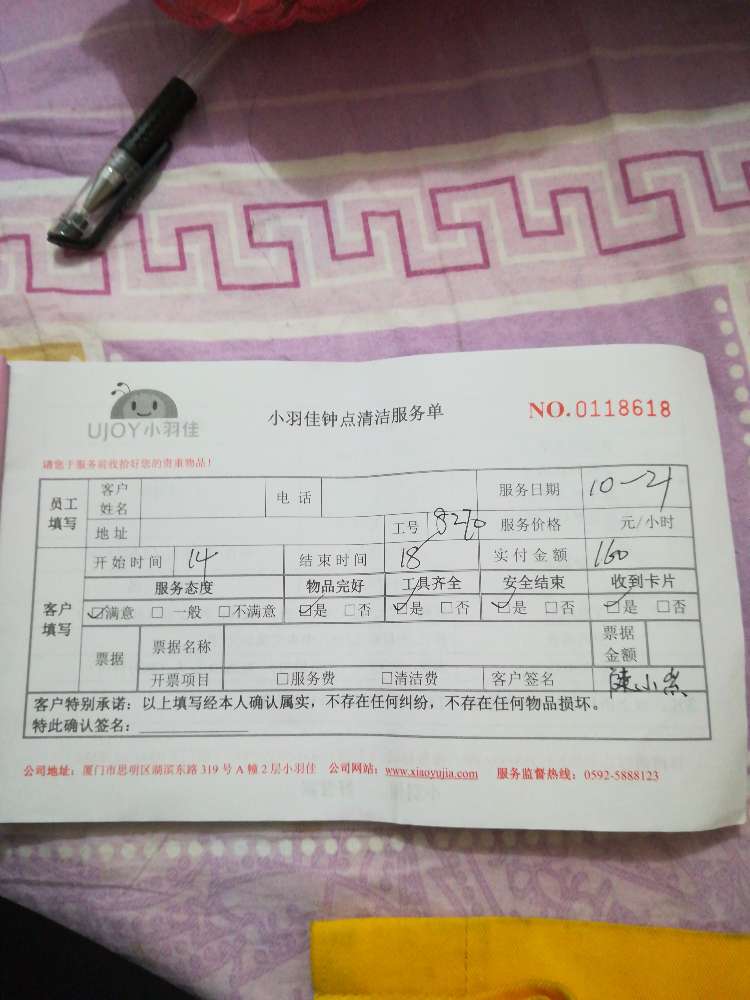 UJOY小羽佳
小羽佳钟点清洁服务单
NO.0118618
请您于服务前收拾好您的贵重物品！
员工填写 客户姓名 电话 服务日期 10-21
地址 工号 8270 服务价格 元/小时
客户填写 开始时间 14 结束时间 18 实付金额 160
服务态度 物品完好 工具齐全 安全结束 收到卡片
☑满意 □一般 □不满意 ☑是 □否 ☑是 □否 ☑是 □否 ☑是 □否
票据 票据名称 票据金额
开票项目 □服务费 □清洁费 客户签名 陈小
客户特别承诺：以上填写经本人确认属实，不存在任何纠纷，不存在任何物品损坏。
特此确认签名：
公司地址：厦门市思明区湖滨东路 319 号 A 幢 2 层小羽佳 公司网站：www.xiaoyujia.com 服务监督热线：0592-5888123